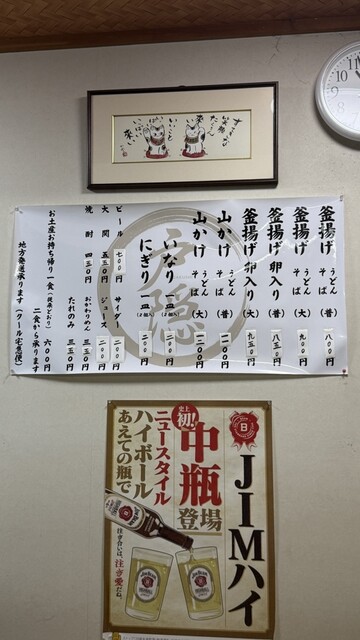 釜揚げ うどん そば (普) 八〇〇
釜揚げ うどん そば (大) 九〇〇
釜揚げ卵入り (普) 八五〇
釜揚げ卵入り (大) 九五〇
山かけ うどん そば (普) 一一〇〇
山かけ うどん そば (大) 一二〇〇
いなり 一皿 (2個入) 二〇〇
にぎり 一皿 (2個入) 二〇〇
ビール 七〇〇
大関 五五〇
焼酎 四五〇
サイダー 二〇〇
ジュース 二〇〇
おかわりめん 三五〇
たれのみ 三五〇
お土産お持ち帰り一食 六〇〇
二食から承ります
地方発送承ります (クール宅急便)
戸隠
JIMハイ
史上初!
中瓶
登場
ニュースタイル
ハイボール
あえての瓶で
注ぎ合いは、注ぎ愛だね。
JIM BEAM